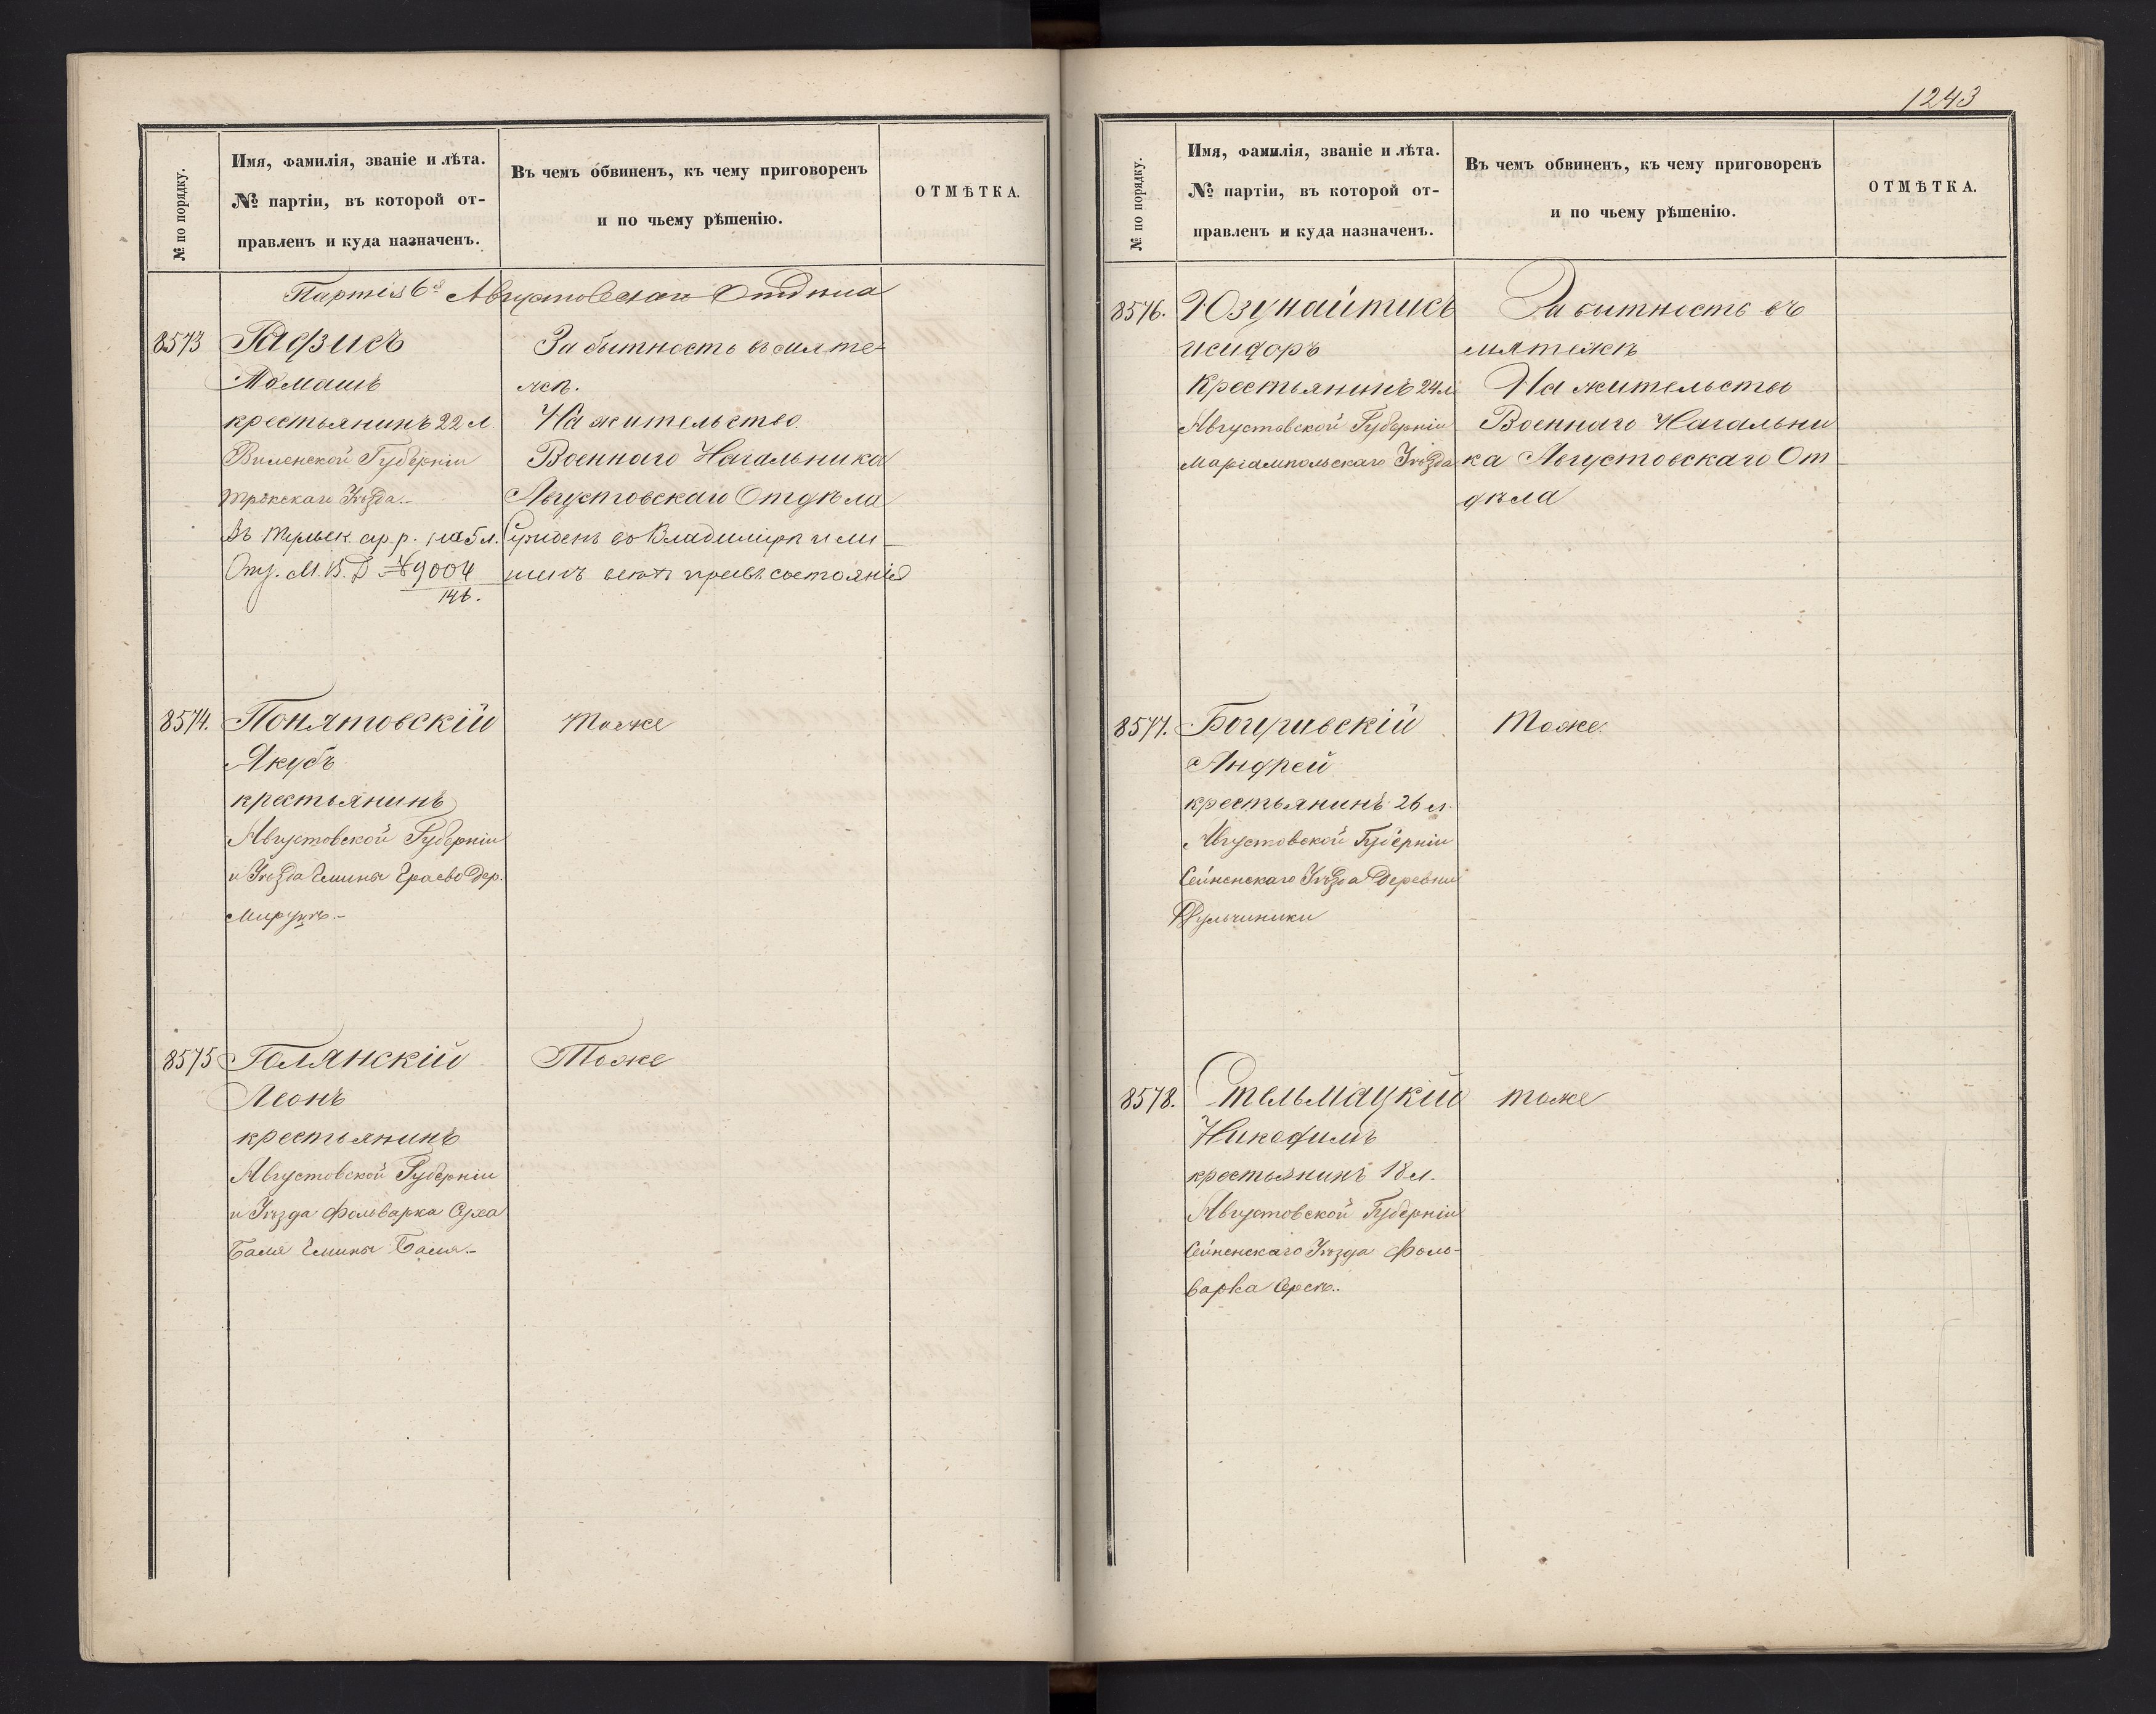 № по порядку.
Имя, фамилія, званіе и лѣта.
№ партіи, въ которой от-
правленъ и куда назначенъ.
Въ чемъ обвиненъ, къ чему приговоренъ
и по чьему рѣшенію.
ОТМѢТКА.
Партія 6я Августовскаго Отдѣла
8573
Томашъ
крестьянинъ 22 л.
Виленской Губерніи
Трокскаго Уѣзда.-
на 5 л.
Отз. М. В. Д. № 9004
146.
За бытность въ мяте-
жѣ.
На жительство.
Военнаго Начальника
Августовскаго Отдѣла
во Владимірѣ и ли
шенъ состоянія
8574.
Понятовскій
Якубъ
крестьянинъ
Августовской Губерніи
и Уѣзда Гмины Граево Дер.
Тоже
8575
Голянскій
Леонъ
крестьянинъ
Августовской Губерніи
и Уѣзда фольварка Суха
Гмины
Тоже
1243
№ по порядку.
Имя, фамилія, званіе и лѣта.
№ партіи, въ которой от-
правленъ и куда назначенъ.
Въ чемъ обвиненъ, къ чему приговоренъ
и по чьему рѣшенію.
ОТМѢТКА.
8576.
Юзунайтисъ
Исидоръ
Крестьянинъ 24 л
Августовской Губерніи
Маріампольскаго Уѣзда
За бытность въ
мятежѣ
На жительство
Военнаго Начальни
ка Августовскаго От
дѣла
8577.
Андрей
крестьянинъ 26 л.
Августовской Губерніи
Сейненскаго Уѣзда Деревни
Тоже.
8578.
Стельмацкій
Никодимъ
крестьянинъ 18 л.
Августовской Губерніи
Сейненскаго Уѣзда фоль-
варка
тоже